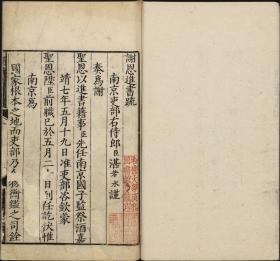 謝恩進書疏
南京吏部右侍郎臣湛若水謹
奏為謝
聖恩以進書籍事臣先任南京國子監祭酒嘉
靖七年五月十九日准吏部咨欽蒙
聖恩陞臣前職已於五月二 日到任訖伏惟
南京為
國家根本之地而吏部乃 衡鑑之司銓